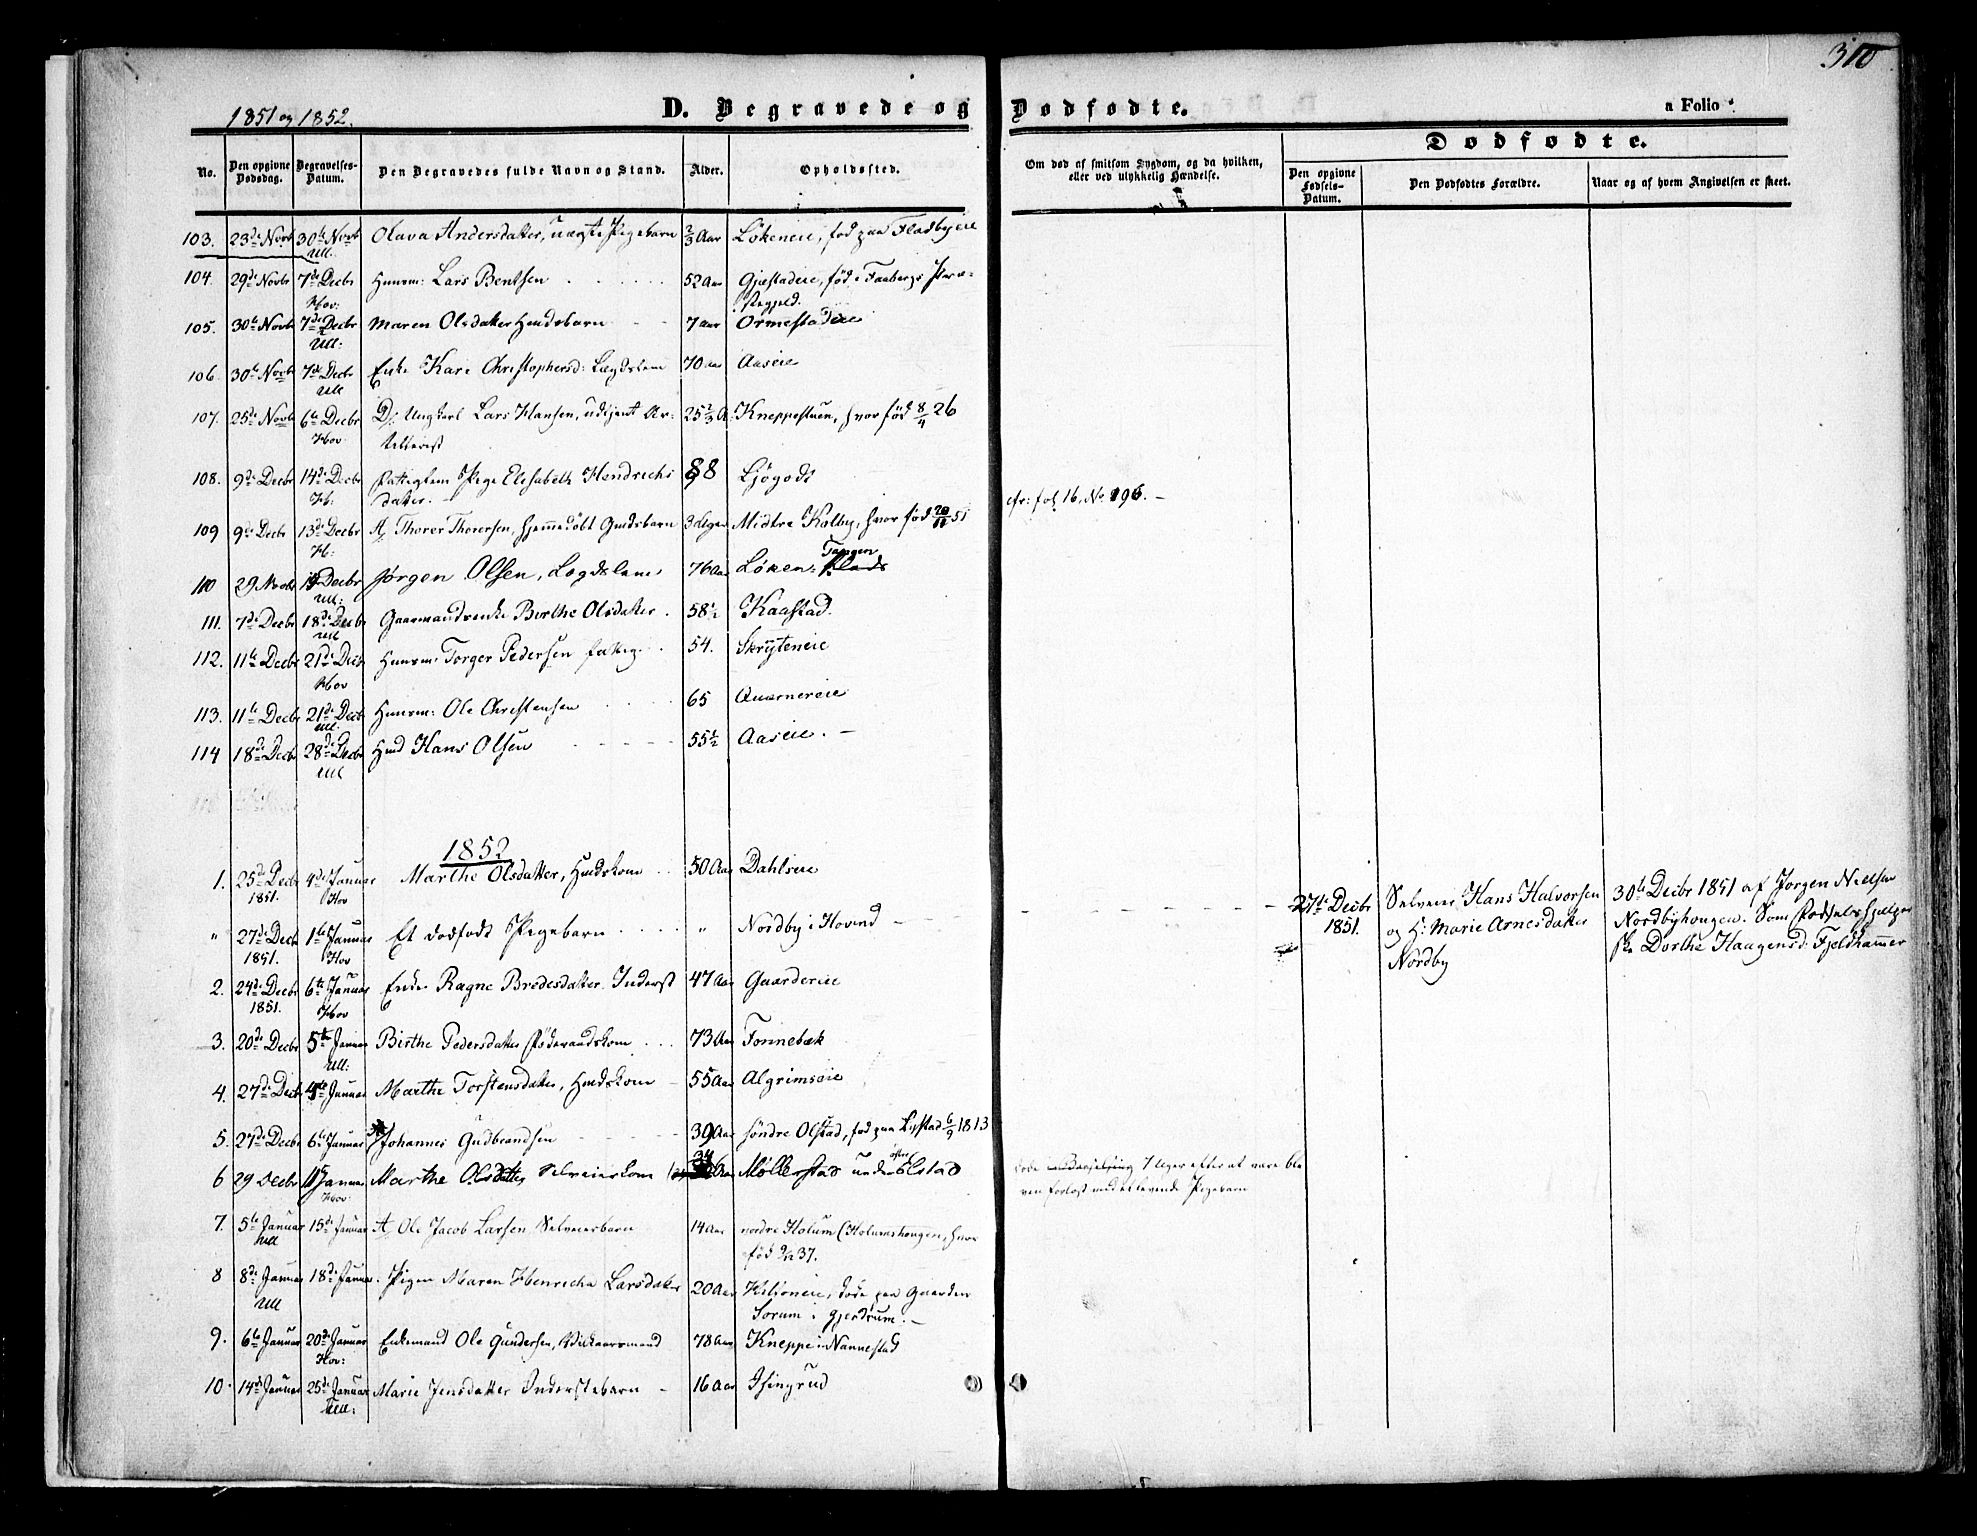 310
1851 og 1852.
D. Begravede og Dødfødte.
a Folio
Dødfødte.
No.
Den opgivne Dødsdag.
Begravelses-Datum.
Den Begravedes fulde Navn og Stand.
Alder.
Opholdssted.
Om død af smitsom Sygdom, og da hvilken, eller ved ulykkelig Hændelse.
Den opgivne Fødsels-Datum.
Den Dødfødtes Forældre.
Naar og af hvem Angivelsen er skeet.
103. 23de Novb 30te Novb Olava Andersdatter, uægte Pigebarn 2/3 Aar Løkeneie, fød paa Fladbyeie
Ull.
104. 29de Novbr 7de Decbr Huusm: Lars Bentsen 52 Aar Gjestadeie, fød i Faabergs Præ-
Hov: stegjeld.
105. 30te Novb 7de Decbr Maren Olsdatter Huusbarn 7 aar Ormestadeie
Ull:
106. 30te Novb 7de Decbr Enke Kari Christophersd: Lægdslem 70 aar Aaseie
Ull
107. 25de Novb 6te Decbr D/ Ungkarl Lars Hansen, udtjent Ar- 25 2/3 A. Kneppestuen, hvor fød 8/4 26
Hov tillerist
108. 9de Decbr 14de Decbr Fattiglem Pige Elisabeth Hendrichs 88 Ljøgods
H: datter.
cfr: fol 16, No 196. -
109 9de Decb 13de Decbr A/ Thorer Thorersen, hjemmedøbt Gaardsbarn 3 Uger Midtre Kalby, hvor fød 20/11 51
H:
110 29 Novbr Decbr Jørgen Olsen, Legdslem 76 Aar Løken: Tangen
Ull:
111. 7de Decbr 18de Decbr Gaarmandsenke Berthe Olsdatter. 58½ Kaastad.
Ull
112. 11te Decbr 21de Decb Huusm: Torger Pedersen fattig. 54. Skryteneie
Hov
113. 11te Decbr 21de Decb Huusm: Ole Christensen 65 Quærnereie
Ull.
114 18de Decbr 28de Decbr Huusm Hans Olsen 55½ Aaseie. -
Ull
1852
1. 25de Decbr 4de Januar Marthe Olsdatter, Huuskone 50 Aar Dahlseie
1851. Hov
" 27de Decb 1te Januar Et dødfødt Pigebarn " Nordby i Hovind
1851. Hov
27de Decbr Selveier Hans Halvorsen 30te Decbr 1851 af Jørgen Nielsen
1851. og H: Marie Arnesdatter Nordbyhougen. Som Fødselshjelper-
Nordby ske Dorthe Haagensd: Fjeldhammer
2. 24de Decbr 6te Januar Enke Ragne Bredesdatter Inderst 47 Aar Gaardereie
1851. Hov
3. 20de Decbr 5te Januar Birthe Pedersdatter Føderaadskone 73 Aar Fonnebæk
Ull:
4. 27de Decb 4de Januar Marthe Torstensdatter, Huuskone 55 Aar Algrimseie
5. 27de Decbr 6te Januar Johannes Gudbrandsen 39 Aar søndre Olstad, fød paa Lystad 6/9 1813
6 29 Decbr Januar Marthe Olsdatter Selveierkone Aar Møllerstad under østre Olstad
Hov.
døde i Barselseng 7 Uger efter at være ble
ven forløst med et levende Pigebarn
7. 5te Januar 15de Januar A, Ole Jacob Larsen Selveiersbarn 14 Aar nordre Holum (Holumshougen, hvor
Ull fød 37.
8 8de Januar 18de Januar. Pigen Maren Henricha Larsdatter 20 Aar Kiloneie, døde paa Gaarden
Ull Sørum i Gjerdrum. -
9. 6te Januar 20de Januar Enkemand Ole Gundersen, Vilkaarsmand 78 Aar Kneppe i Nannestad
Hov:
10. 14de Januar 25de Januar Marie Jensdatter Inderstebarn 16 Aar Isingrud
Ull: